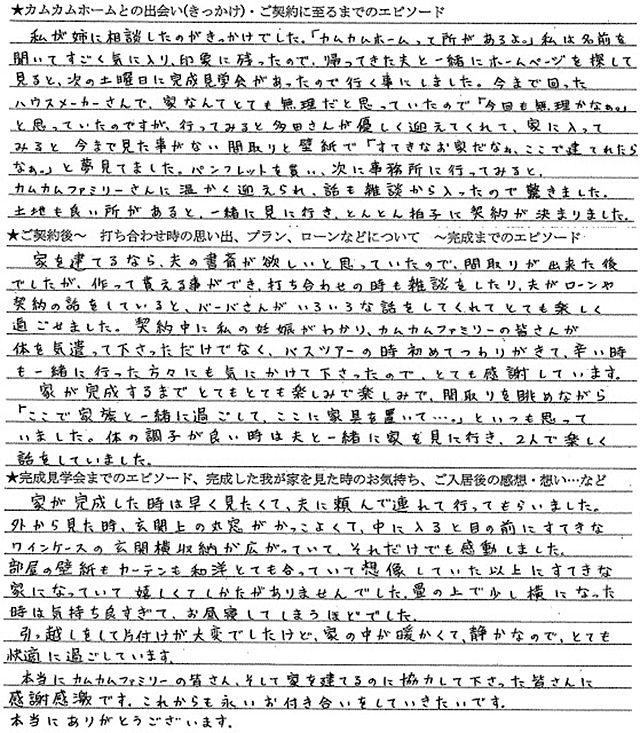 ★カムカムホームとの出会い(きっかけ)・ご契約に至るまでのエピソード
私が姉に相談したのがきっかけでした。「カムカムホームって所があるよ。」私は名前を
聞いてすごく気に入り、印象に残ったので、帰ってきた夫と一緒にホームページを探して
見ると、次の土曜日に完成見学会があったので行く事にしました。今まで回った
ハウスメーカーさんで、家なんてとても無理だと思っていたので「今回も無理かなぁ。」
と思っていたのですが、行ってみると多田さんが優しく迎えてくれて、家に入って
みると今まで見た事がない間取りと壁紙で「すてきなお家だなぁ、ここで建てれたら
なぁ。」と夢見てました。パンフレットを貰い、次に事務所に行ってみると、
カムカムファミリーさんに温かく迎えられ、話も雑談から入ったので驚きました。
土地も良い所があると、一緒に見に行き、とんとん拍子に契約が決まりました。
★ご契約後～ 打ち合わせ時の思い出、プラン、ローンなどについて ～完成までのエピソード
家を建てるなら、夫の書斎が欲しいと思っていたので、間取りが出来た後
でしたが、作って貰える事ができ、打ち合わせの時も雑談をしたり、夫がローンや
契約の話をしていると、バーバさんがいろいろな話をしてくれてとても楽しく
過ごせました。契約中に私の妊娠がわかり、カムカムファミリーの皆さんが
体を気遣って下さっただけでなく、バスツアーの時初めてつわりがきて、辛い時
も一緒に行った方々にも気にかけて下さったので、とても感謝しています。
家が完成するまでとてもとても楽しみで楽しみで、間取りを眺めながら
「ここで家族と一緒に過ごして、ここに家具を置いて…。」といつも思って
いました。体の調子が良い時は夫と一緒に家を見に行き、2人で楽しく
話をしていました。
★完成見学会までのエピソード、完成した我が家を見た時のお気持ち、ご入居後の感想・想い…など
家が完成した時は早く見たくて、夫に頼んで連れて行ってもらいました。
外から見た時、玄関上の丸窓がかっこよくて、中に入ると目の前にすてきな
ワインケースの玄関横収納が広がっていて、それだけでも感動しました。
部屋の壁紙もカーテンも和洋とても合っていて想像していた以上にすてきな
家になっていて嬉しくてしかたがありませんでした。畳の上で少し横になった
時は気持ち良すぎて、お昼寝してしまうほどでした。
引っ越しをして片付けが大変でしたけど、家の中が暖かくて、静かなので、とても
快適に過ごしています。
本当にカムカムファミリーの皆さん、そして家を建てるのに協力して下さった皆さんに
感謝感激です。これからも永いお付き合いをしていきたいです。
本当にありがとうございます。